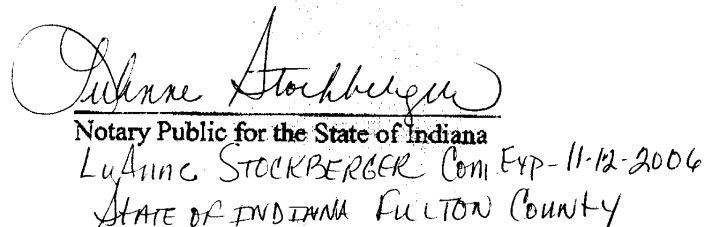 LuAnne Stockberger
Notary Public for the State of Indiana
LuAnne STOCKBERGER Com Exp - 11-12-2006
STATE OF INDIANA FULTON COUNTY